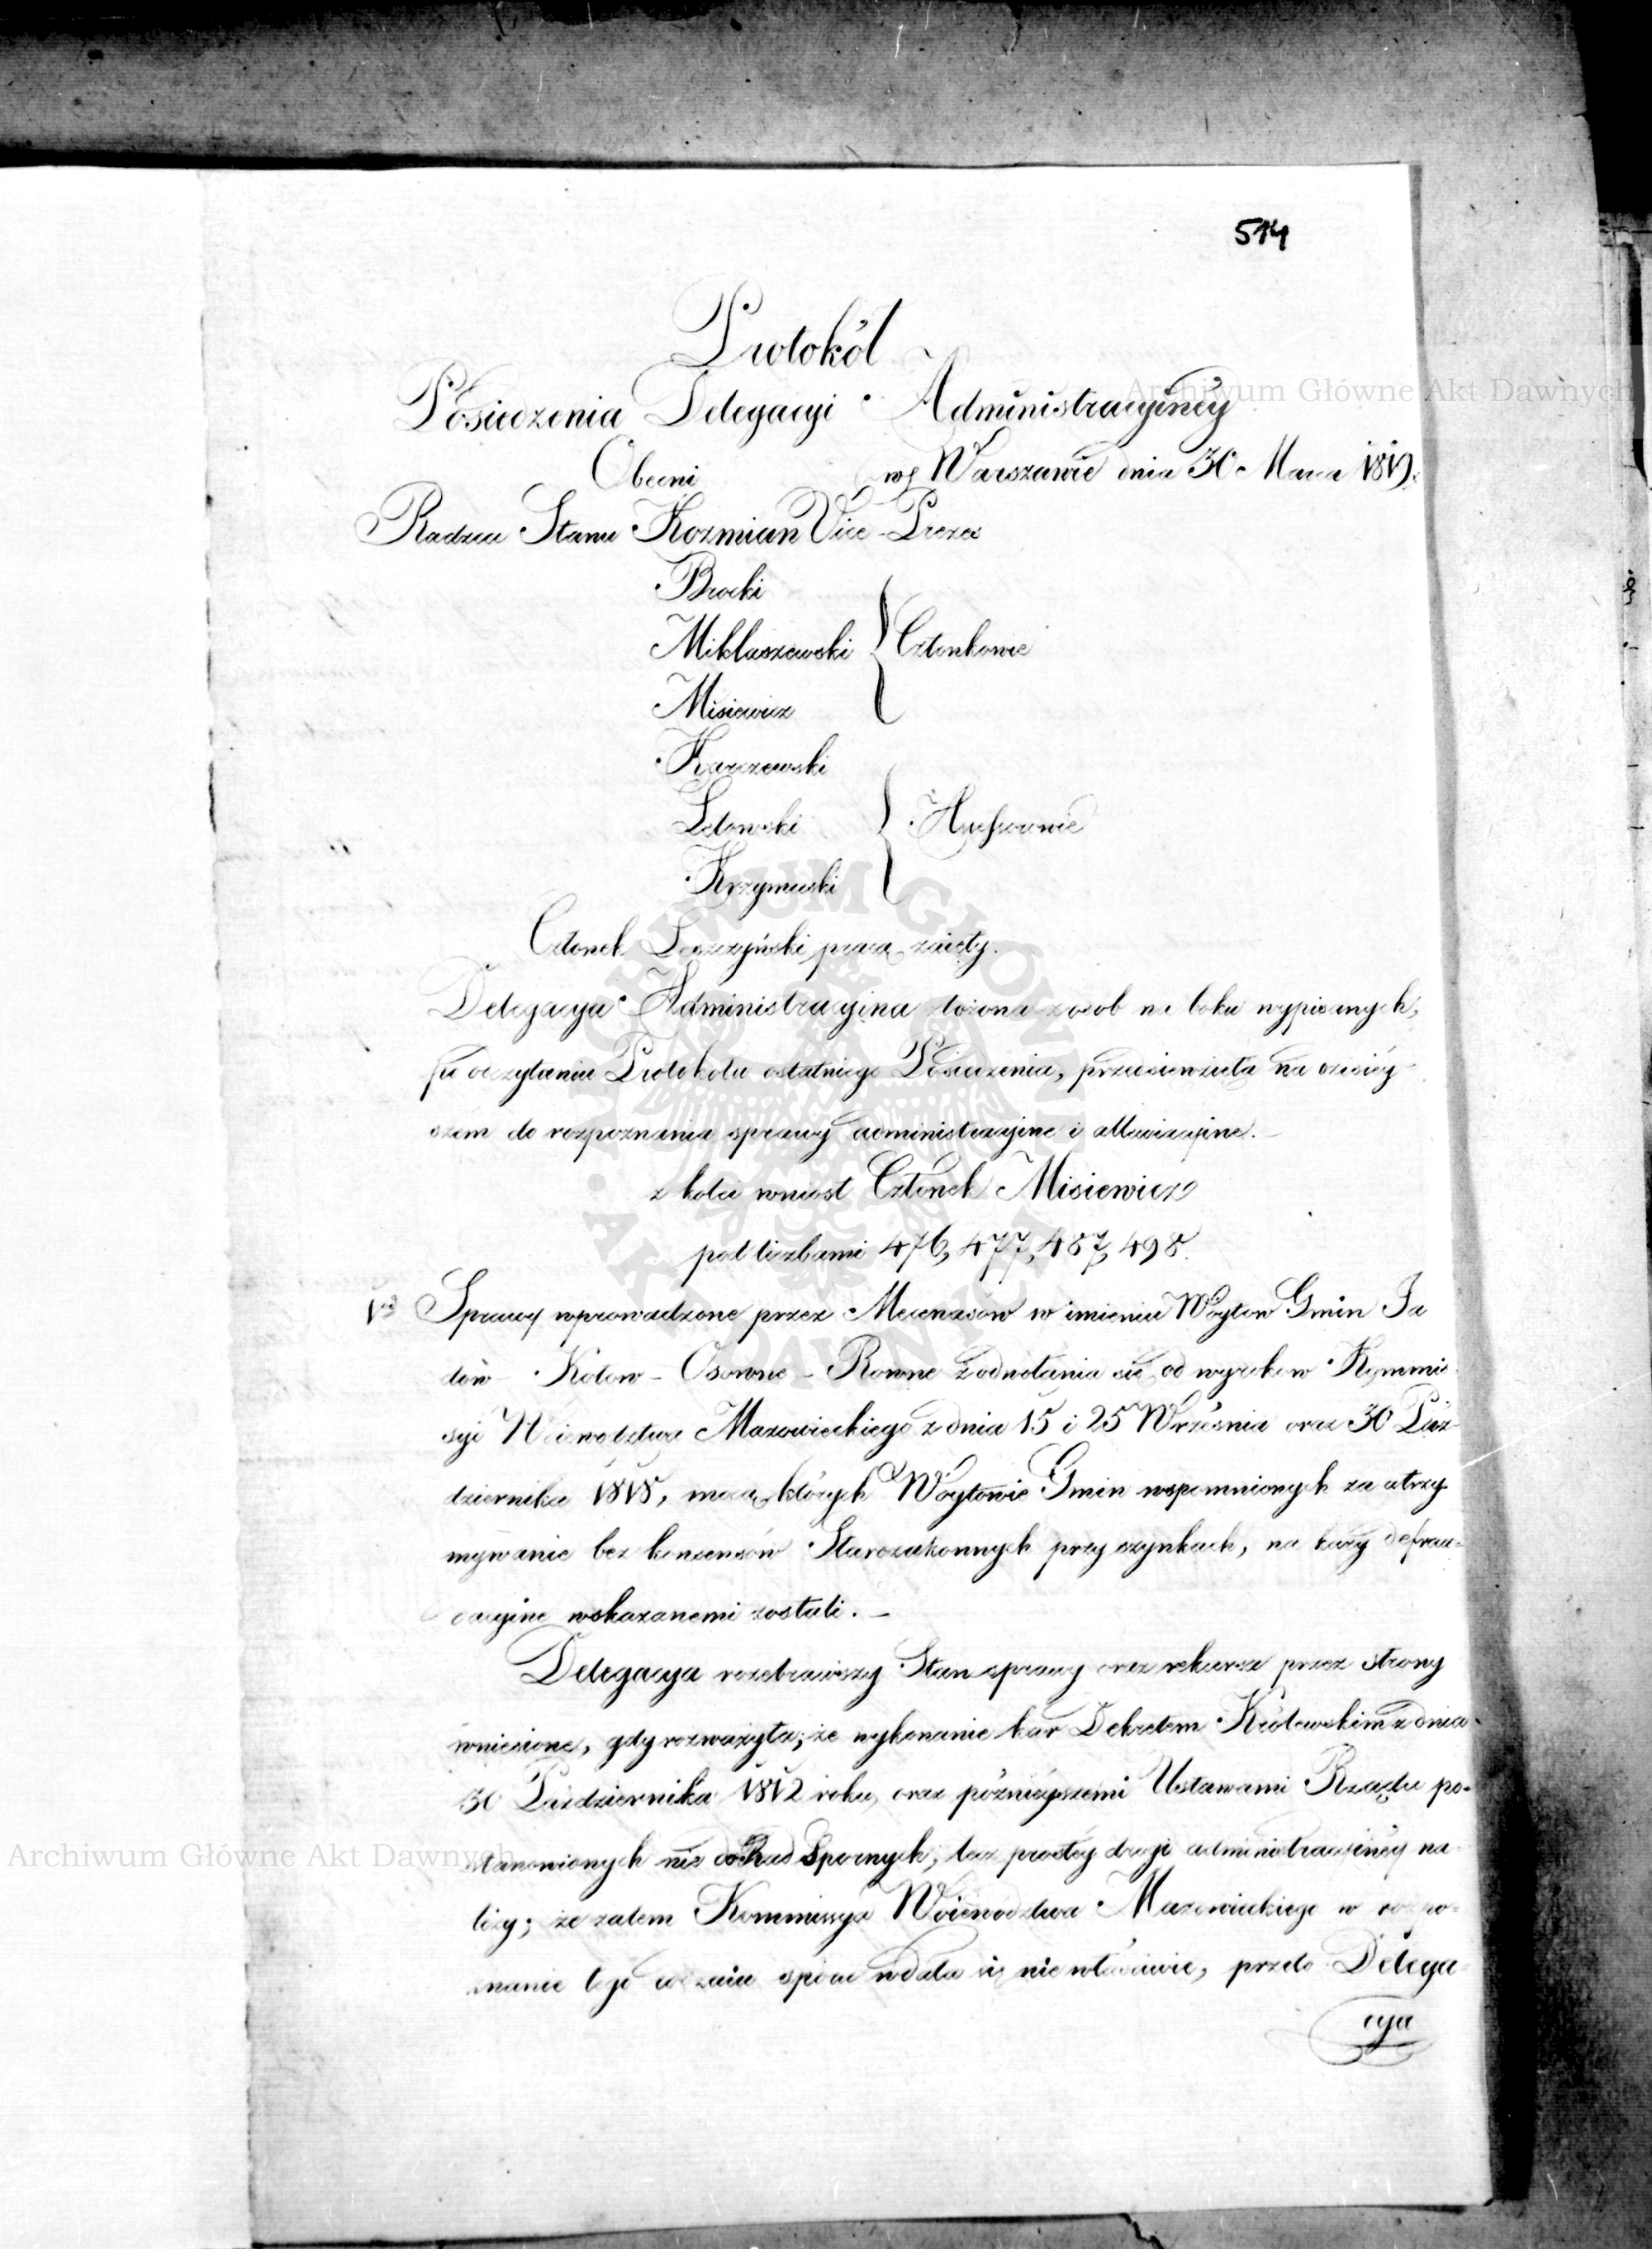 514
Protokół
Posiedzenia Delegacyi Administracyiney
Obecni w Warszawie dnia 30 Marca 1819.
Radzca Stanu Kozmian Vice-Prezes
Brocki
Miklaszewski Członkowie
Misiewicz
Karczewski
Letowski Assessorowie
Krzymuski
Członek Leszczyński pracą zaięty.
Delegacya Administracyina złożona z osob na boku wypisanych,
po odczytaniu Protokołu ostatniego Posiedzenia, przedsiewzieła na dzisiey-
szem do rozpoznania sprawy administracyine i
z kolei wniosł Członek Misiewicz
pod liczbami 476, 477, 487, 498.
1º Sprawy wprowadzone przez Mecenasów w imieniu Woytow Gmin Ja
dów - Kołow - Osowne - Rowne z odwołania się od wyrokow Kommis
syi Woiewodztwa Mazowieckiego z dnia 15 i 25 Września oraz 30 Paz-
dziernika 1818, mocą których Woytowie Gmin wspomnionych za utrzy-
mywanie bez konsensów Starozakonnych przy szynkach, na kary defrau-
dacyine wskazanemi zostali. -
Delegacya rozebrawszy Stan sprawy oraz rekursa przez strony
wniesione, gdy rozważyła; że wykonanie kar Dekretem Królewskim z dnia
30 Pazdziernika 1812 roku, oraz pózniéyszemi Ustawami Rządu po-
stanowionych nie do Rad Spornych, lecz prostey drogi administracyiney na-
leży; że zatem Kommissya Woiewodztwa Mazowieckiego w rozpo-
znanie tego rodzaiu sporu wdała się niewłaściwie, przeto Delega-
cya
Archiwum Główne Akt Dawnych
Archiwum Główne Akt Dawnych
ARCHIWUM GŁÓWNE AKT DAWNYCH